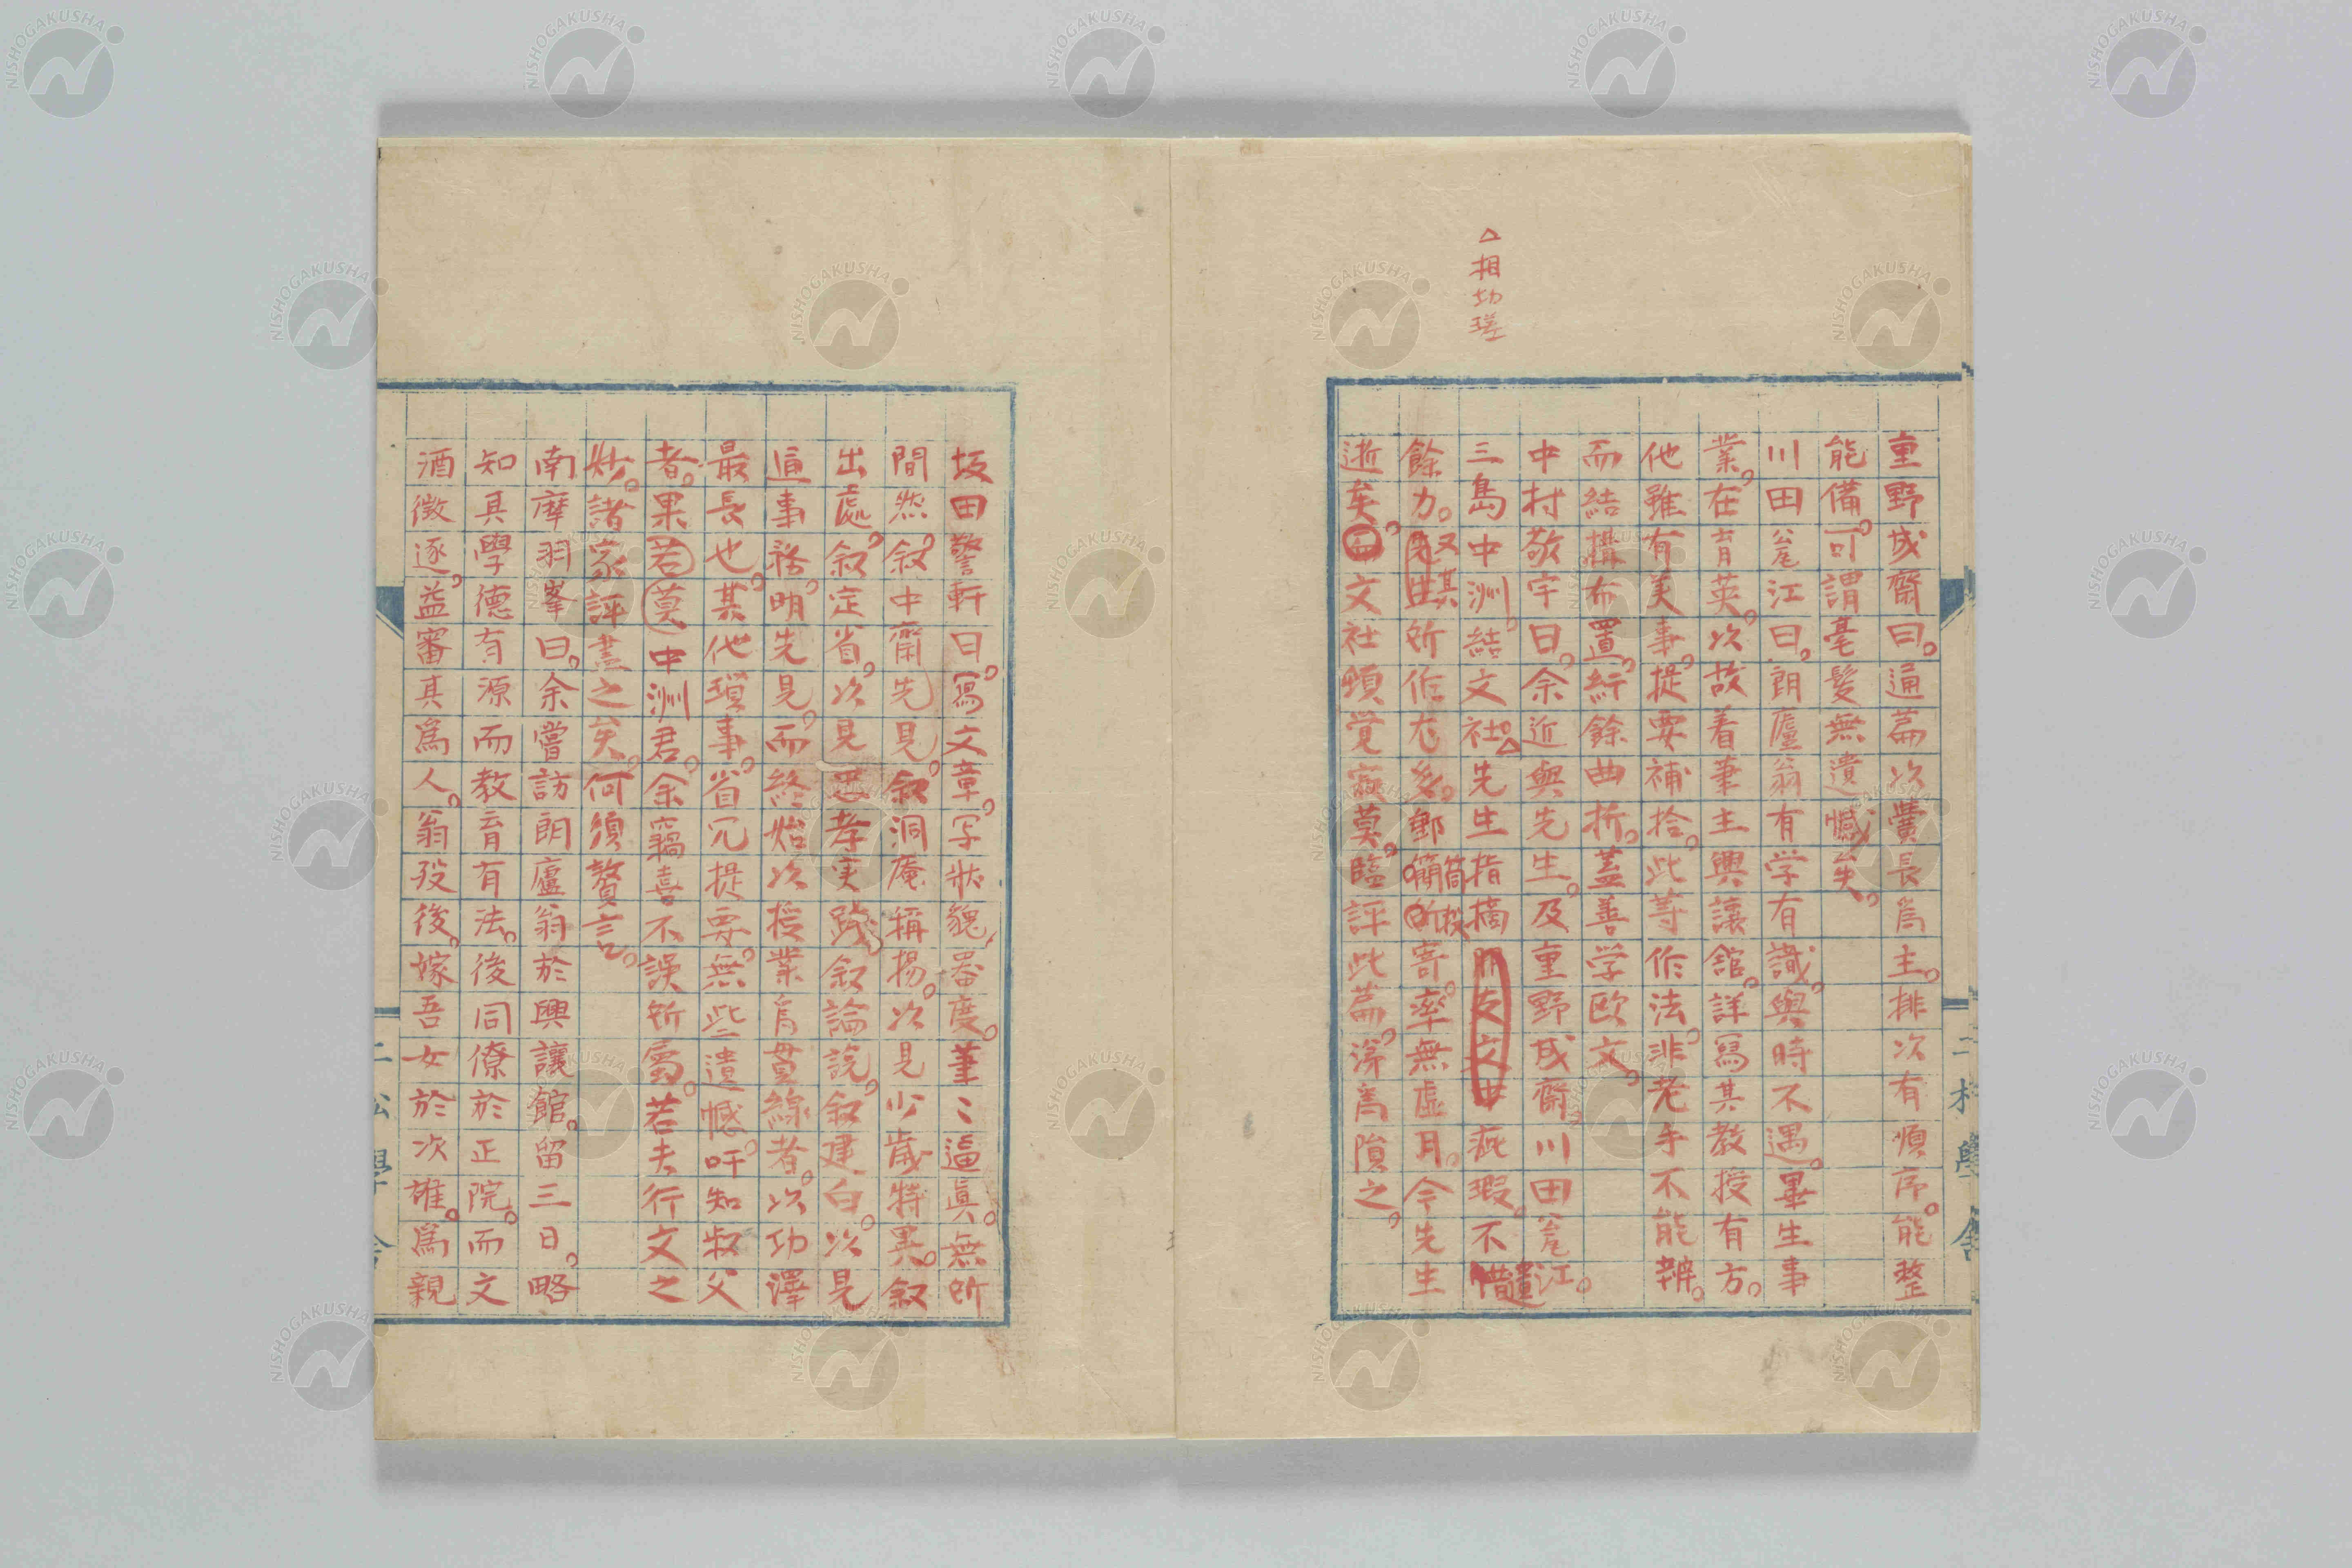 △相切瑳
重野成齋曰。通篇次黌長爲主。排次有順序。能整
能備。可謂毫髮無遺憾矣。
川田瓮江曰。朗廬翁有学有識。與時不遇。畢生事
業。在育英。次故着筆主興讓館。詳冩其教授有方。
他雖有美事。提要補拾。此等作法。非老手不能辨。
而結構布置。紆餘曲折。蓋善学欧文。
中村敬宇曰。余近與先生。及重野成齋。川田瓮江。
三島中洲。結文社。△先生指摘疵瑕。不遺
餘力。又其所作尤多。郵筒投寄。率無虛月。今先生
逝矣。文社頓覚寂莫。臨評此篇。潸焉隕之。
坂田警軒曰。冩文章。字狀貌。器度。筆〻逼眞。無所
間然。叙中齋先見。叙洞庵稱揚。次見少歳特異。叙
出處。叙定省。次見忠孝実踐。叙論説。叙建白。以見
通事務。明先見。而終始次授業育英
最長也。其他瑣事。省冗提要。無些遺憾。吁知叔父
者。果若莫中洲君。余竊喜不誤所屬。若夫行文之
妙。諸家評盡之矣。何須贅言。
南摩羽峯曰。余嘗訪朗廬翁於興讓館。留三日。略
知其學德有源而教育有法。後同僚於正院。而文
酒徴逐。益審其爲人。翁歿後。嫁吾女於次雄。爲親
二松學舍
二松學舍
NISHOGAKUSHA